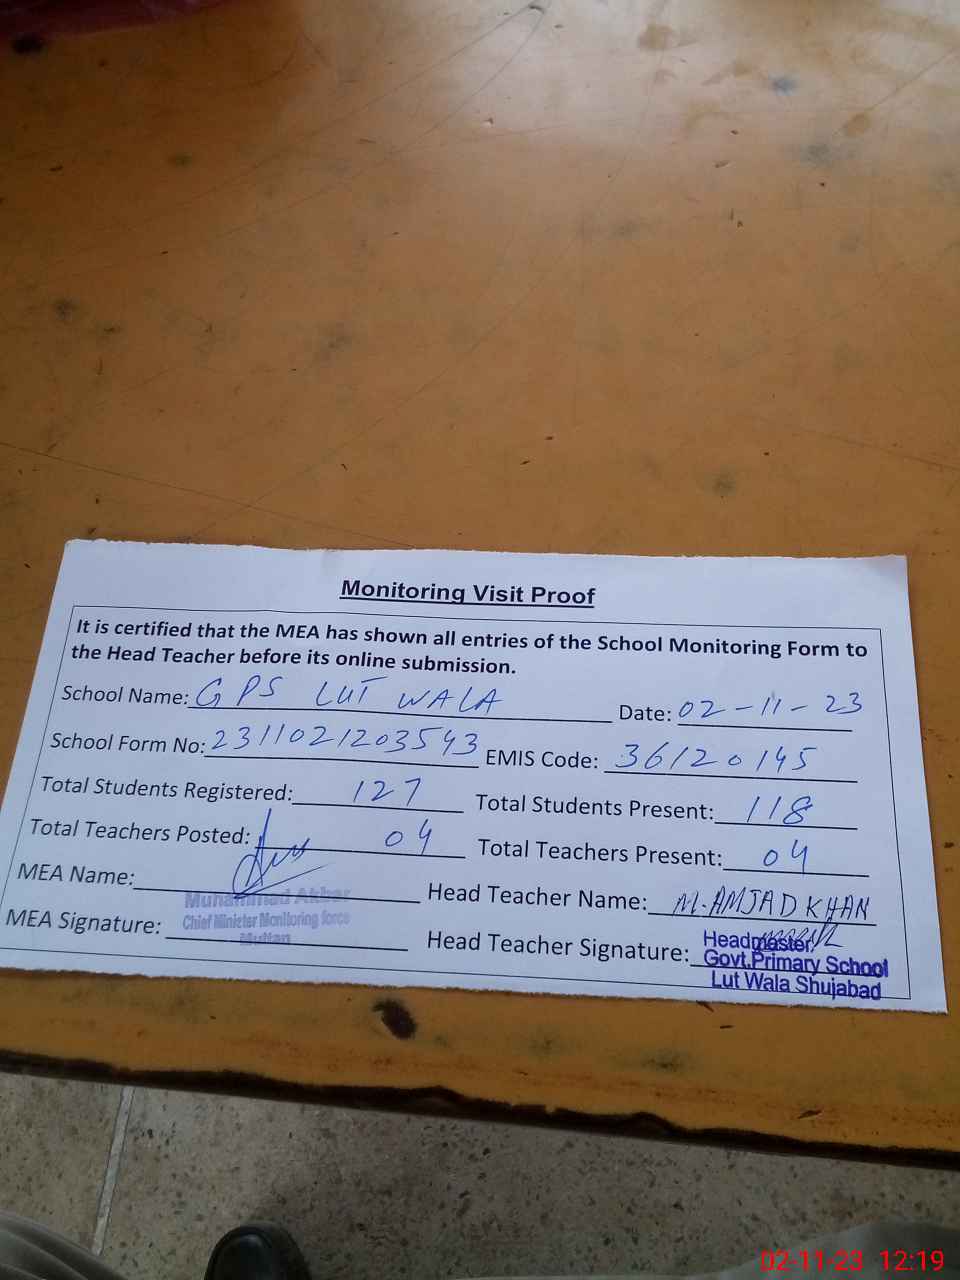 Monitoring Visit Proof
It is certified that the MEA has shown all entries of the School Monitoring Form to
the Head Teacher before its online submission.
School Name: GPS LUT WALA Date: 02-11-23
School Form No: 2311021203543 EMIS Code: 36120145
Total Students Registered: 127 Total Students Present: 118
Total Teachers Posted: 04 Total Teachers Present: 04
MEA Name: Muhammad Akbar Head Teacher Name: M. AMJAD KHAN
Chief Minister Monitoring force
Multan
MEA Signature: Head Teacher Signature:
Headmaster
Govt.Primary School
Lut Wala Shujabad
02-11-23 12:19